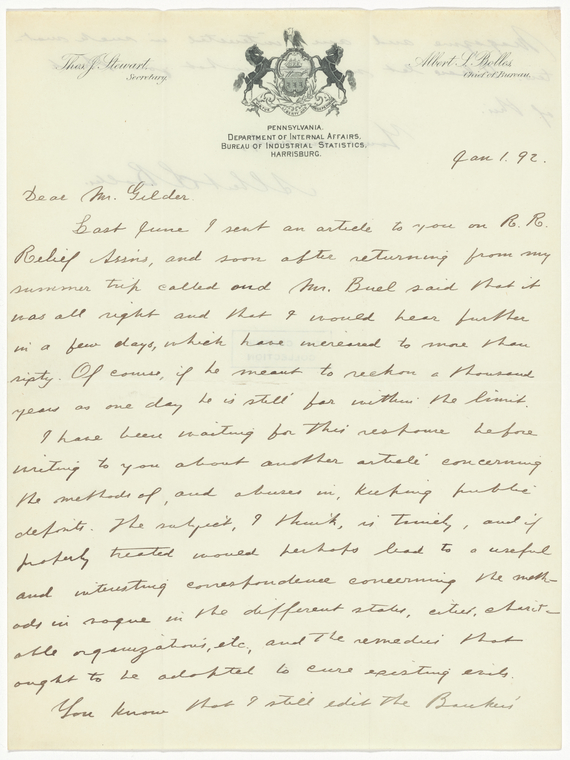 Thos. J. Stewart,
Secretary.
Albert S. Bolles,
Chief of Bureau.
PENNSYLVANIA.
DEPARTMENT OF INTERNAL AFFAIRS,
BUREAU OF INDUSTRIAL STATISTICS,
HARRISBURG.
Jan 1. 92.
Dear Mr. Gilder.
Last June I sent an article to you on R. R.
Relief Assns, and soon after returning from my
summer trip called and Mr. Buel said that it
was all right and that I would hear further
in a few days, which have increased to more than
sixty. Of course, if he meant to reckon a thousand
years as one day he is still far within the limit.
I have been waiting for this response before
writing to you about another article concerning
the methods of, and abuses in, keeping public
deposits. The subject, I think, is timely, and if
properly treated would perhaps lead to a useful
and interesting correspondence concerning the meth-
ods in vogue in the different states, cities, charit-
able organizations, etc, and the remedies that
ought to be adopted to cure existing evils.
You know that I still edit the Bankers'